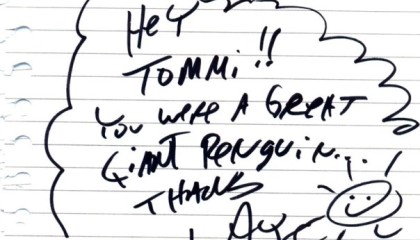 HEY
TOMMi!!
YOU WERE A GREAT
GiANT PENGUiN...!
THANKS